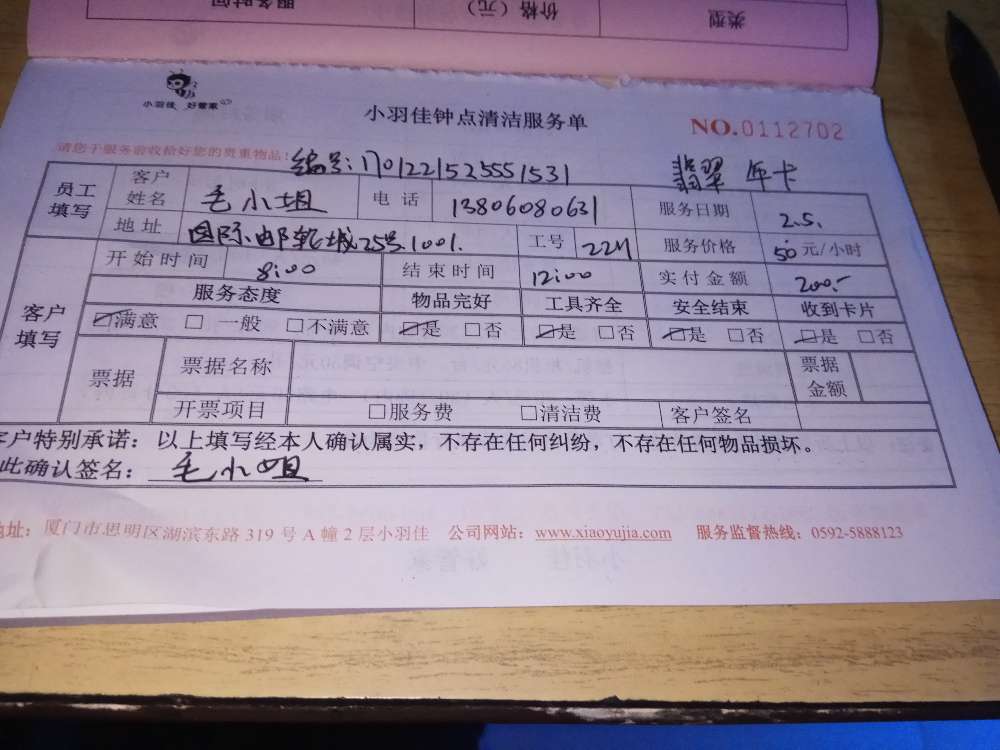 类型 价格（元） 服务时间
小羽佳 好管家
小羽佳钟点清洁服务单 NO.0112702
请您于服务前收拾好您的贵重物品!
编号:1701221525551531 翡翠 年卡
员工填写 客户姓名 毛小姐 电话 13806080631 服务日期 2.5.
地址 国际邮轮城25号1001. 工号 2211 服务价格 50元/小时
客户填写 开始时间 8:00 结束时间 12:00 实付金额 200.-
服务态度 物品完好 工具齐全 安全结束 收到卡片
☑满意 □一般 □不满意 ☑是 □否 ☑是 □否 ☑是 □否 ☑是 □否
票据 票据名称 票据金额
开票项目 □服务费 □清洁费 客户签名
客户特别承诺：以上填写经本人确认属实，不存在任何纠纷，不存在任何物品损坏。
此确认签名：毛小姐
地址：厦门市思明区湖滨东路 319 号 A 幢 2 层小羽佳 公司网站：www.xiaoyujia.com 服务监督热线：0592-5888123